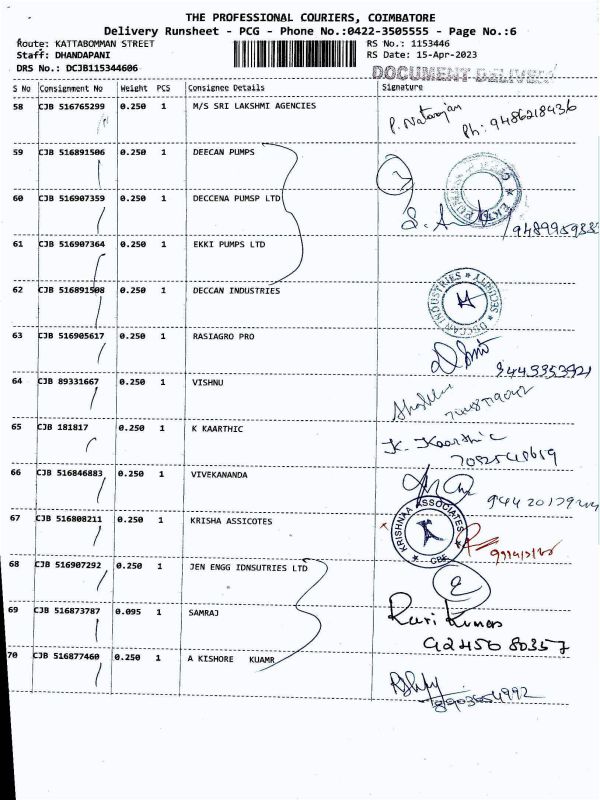 THE PROFESSIONAL COURIERS, COIMBATORE
Delivery Runsheet - PCG - Phone No.:0422-3505555 - Page No.:6
Route: KATTABOMMAN STREET
RS No.: 1153446
Staff: DHANDAPANI
RS Date: 15-Apr-2023
DRS No.: DCJB115344606
DOCUMENT DELIVERY
S No Consignment No Weight PCS Consignee Details Signature
58 CJB 516765299 0.250 1 M/S SRI LAKSHMI AGENCIES
P. Natarajan
Ph: 9486218436
59 CJB 516891506 0.250 1 DEECAN PUMPS
60 CJB 516907359 0.250 1 DECCENA PUMSP LTD
61 CJB 516907364 0.250 1 EKKI PUMPS LTD
62 CJB 516891508 0.250 1 DECCAN INDUSTRIES
DECCAN INDUSTRIES
63 CJB 516905617 0.250 1 RASIAGRO PRO
9443353921
64 CJB 89331667 0.250 1 VISHNU
65 CJB 181817 0.250 1 K KAARTHIC
K. Kaarthic
66 CJB 516846883 0.250 1 VIVEKANANDA
67 CJB 516808211 0.250 1 KRISHA ASSICOTES
KRISHNAA ASSOCIATES
CBE
68 CJB 516907292 0.250 1 JEN ENGG IDNSUTRIES LTD
2
69 CJB 516873787 0.095 1 SAMRAJ
Ravi Kumar
9245680357
70 CJB 516877460 0.250 1 A KISHORE KUAMR